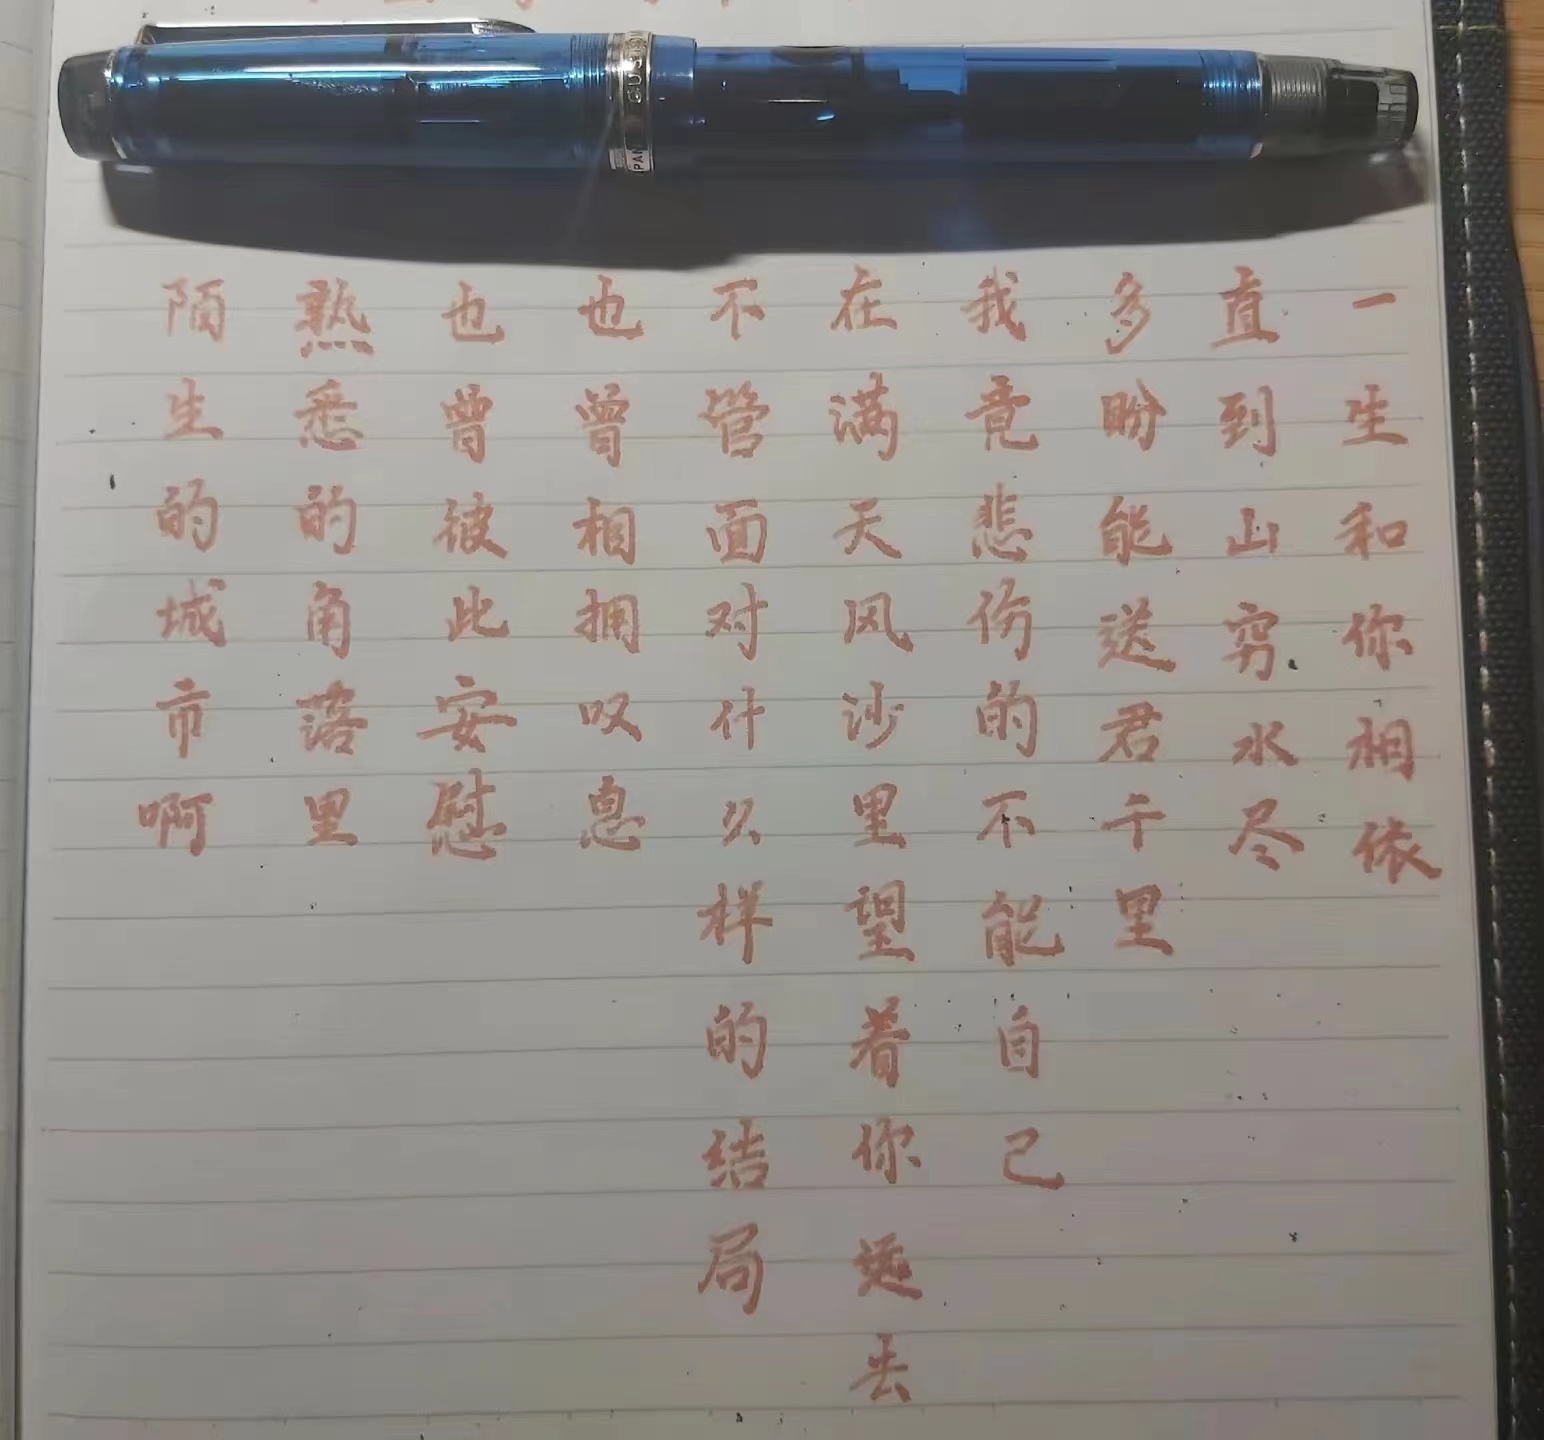 陌生的城市啊
熟悉的角落里
也曾彼此安慰
也曾相拥叹息
不管面对什么样的结局
在满天风沙里望着你远去
我竟悲伤的不能自己
多盼能送君千里
直到山穷水尽
一生和你相依